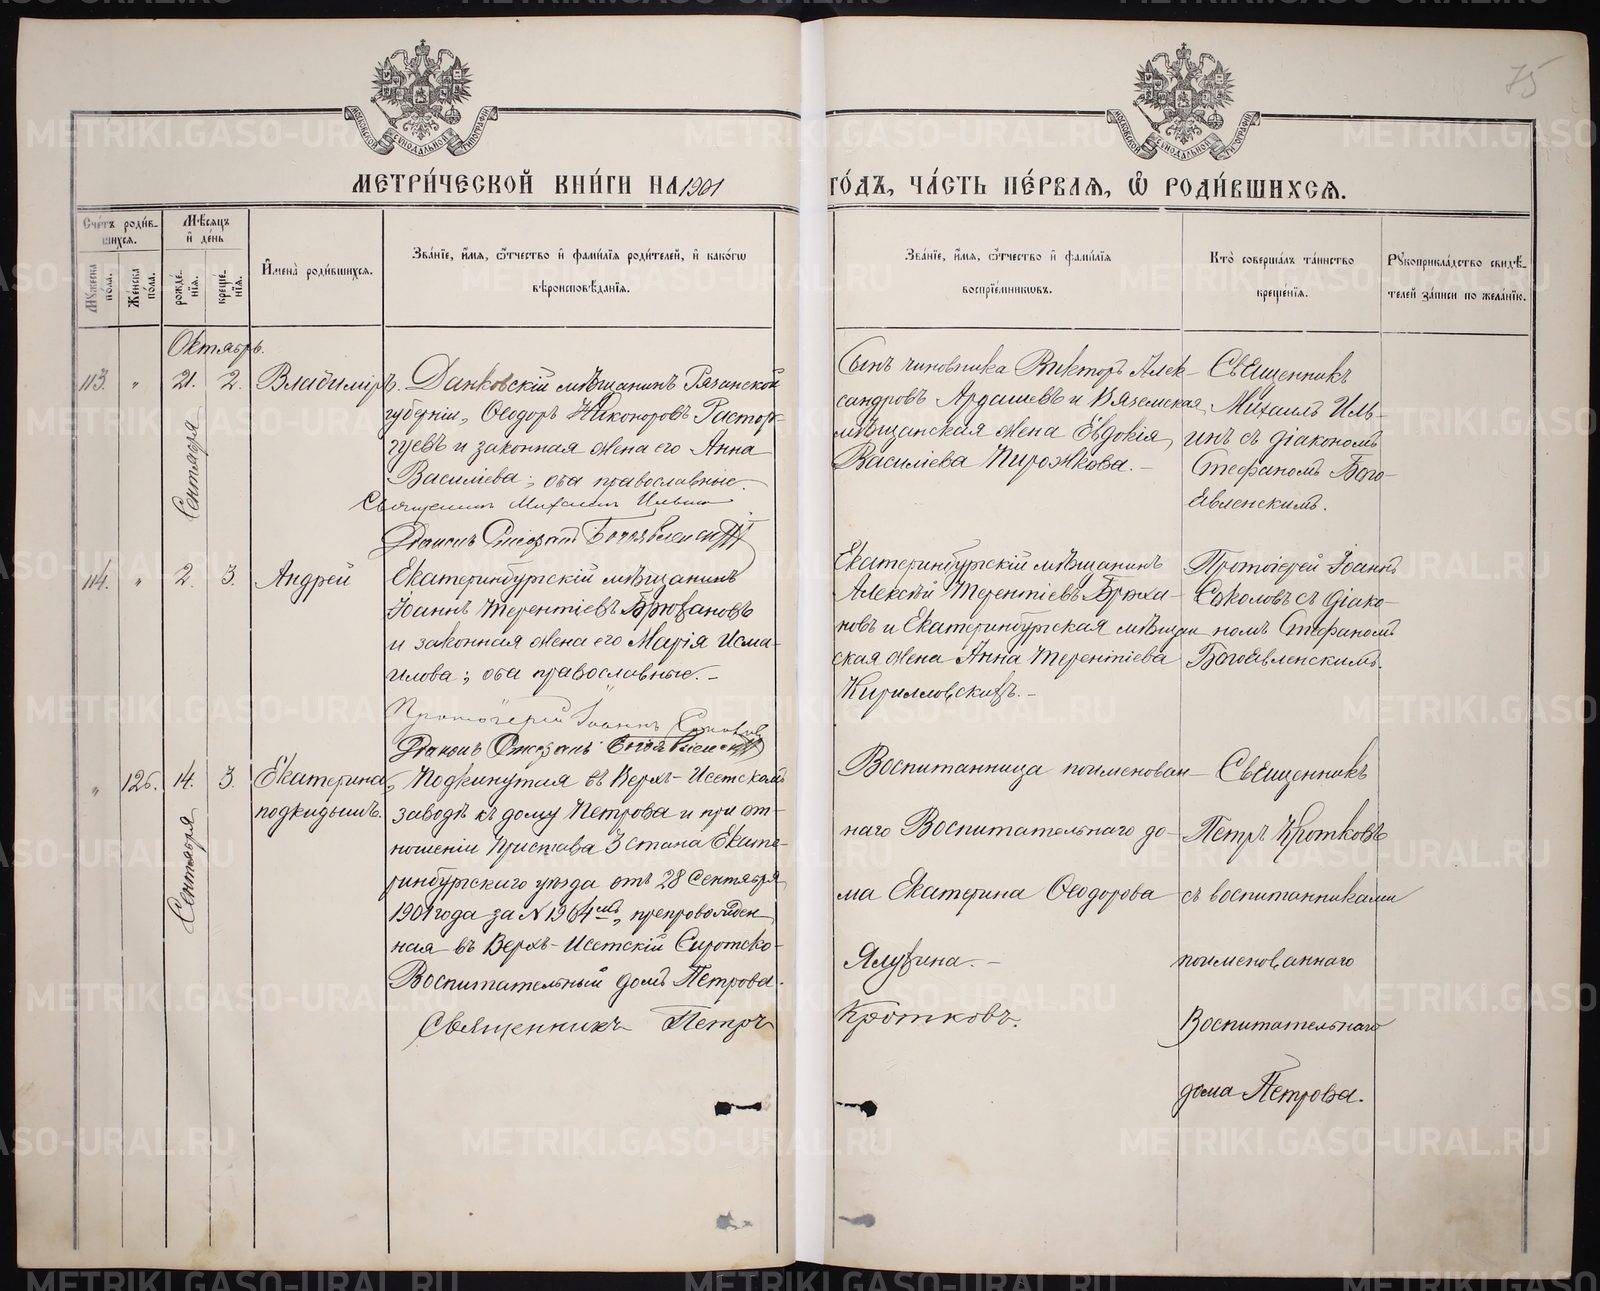 75
МОСКОВСКОЙ СѴНОДАЛЬНОЙ ТИПОГРАФІИ
МОСКОВСКОЙ СѴНОДАЛЬНОЙ ТИПОГРАФІИ
МЕТРИ́ЧЕСКОЙ КНИ́ГИ НА 1901 ГО́ДЪ, ЧА́СТЬ ПЕ́РВАЯ, Ѡ҆ РОДИ́ВШИХСЯ.
Сче́тъ роди́в-
шихся.
Мꙋжеска по́ла.
Же́нска по́ла.
Мѣ́сяцъ
и҆ де́нь
рожде́-
нїя.
креще́-
нїя.
И҆мена̀ роди́вшихся.
Зва́нїе, и҆́мя, ѻ҆́тчество и҆ фами́лїя роди́телей, и҆ како́гѡ
вѣроисповѣ́данїя.
Зва́нїе, и҆́мя, ѻ҆́тчество и҆ фами́лїя
воспрїе́мниковъ.
Кто̀ соверша́лъ та́инство
креще́нїя.
Рꙋкоприкла́дство свидѣ́-
телей за́писи по жела́нїю.
Октябрь.
113. " 21. 2. Владиміръ.
Сентября
Данковскій мѣщанинъ Рязанской
губерніи, Ѳеодоръ Никоноровъ Растор-
гуевъ и законная жена его Анна
Василіева; оба православные.
Священникъ Михаилъ Ильинъ
Діаконъ Стефанъ Богоявленскій
Сынъ чиновника Викторъ Алек-
сандровъ Ардашевъ и Вяземская
мѣщанская жена Евдокія
Василіева Пирожкова. -
Священникъ
Михаилъ Иль-
инъ съ діакономъ
Стефаномъ Бого-
явленскимъ.
114. " 2. 3. Андрей
Екатеринбургскій мѣщанинъ
Іоаннъ Терентіевъ Брюхановъ
и законная жена его Марія Исма-
илова; оба православные. -
Протоіерей Іоаннъ Соколовъ
Діаконъ Стефанъ Богоявленскій
Екатеринбургскій мѣщанинъ
Алексѣй Терентіевъ Брюха-
новъ и Екатеринбургская мѣщан
ская жена Анна Терентіева
Кирилловскихъ. -
Протоіерей Іоаннъ
Соколовъ съ діако-
номъ Стефаномъ
Богоявленскимъ.
" 126. 14. 3. Екатерина
подкидышъ.
Сентября
Подкинутая въ Верхъ-Исетскомъ
заводѣ къ дому Петрова и при от-
ношеніи Пристава 3 стана Екате-
ринбургскаго уѣзда отъ 28 Сентября
1901 года за N 1964мъ, препровожден-
ная въ Верхъ-Исетскій Сиротско-
Воспитательный домъ Петрова.
Священникъ Петръ
Кротковъ.
Воспитанница поименован-
наго Воспитательнаго до-
ма Екатерина Ѳеодорова
Ялузина. -
Священникъ
Петръ Кротковъ
съ воспитанниками
поименованнаго
Воспитательнаго
дома Петрова.
METRIKI.GASO-URAL.RU